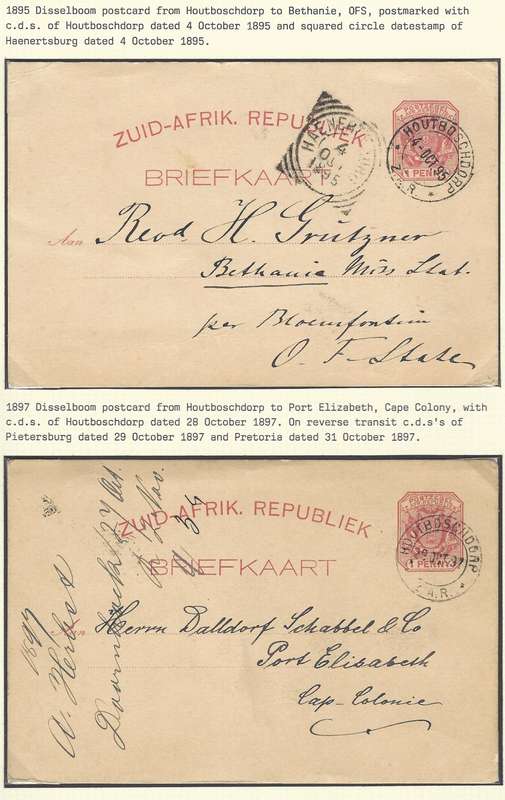 1895 Disselboom postcard from Houtboschdorp to Bethanie, OFS, postmarked with
c.d.s. of Houtboschdorp dated 4 October 1895 and squared circle datestamp of
Haenertsburg dated 4 October 1895.
ZUID-AFRIK. REPUBLIEK
BRIEFKAART
HAENERTSBURG
4
OC
95
HOUTBOSCHDORP
4-OCT 95
Z.A.R.
1 PENNY
Aan Revd. H. Grützner
Bethania Miss Stat.
per Bloemfontein
O. F. State
1897 Disselboom postcard from Houtboschdorp to Port Elizabeth, Cape Colony, with
c.d.s. of Houtboschdorp dated 28 October 1897. On reverse transit c.d.s's of
Pietersburg dated 29 October 1897 and Pretoria dated 31 October 1897.
ZUID-AFRIK. REPUBLIEK
BRIEFKAART
HOUTBOSCHDORP
28 OCT 97
Z.A.R.
PENNY
Aan Herrn Dalldorf Schabbel & Co
Port Elisabeth
Cap-Colonie
1897
A. Herbst
Nov.